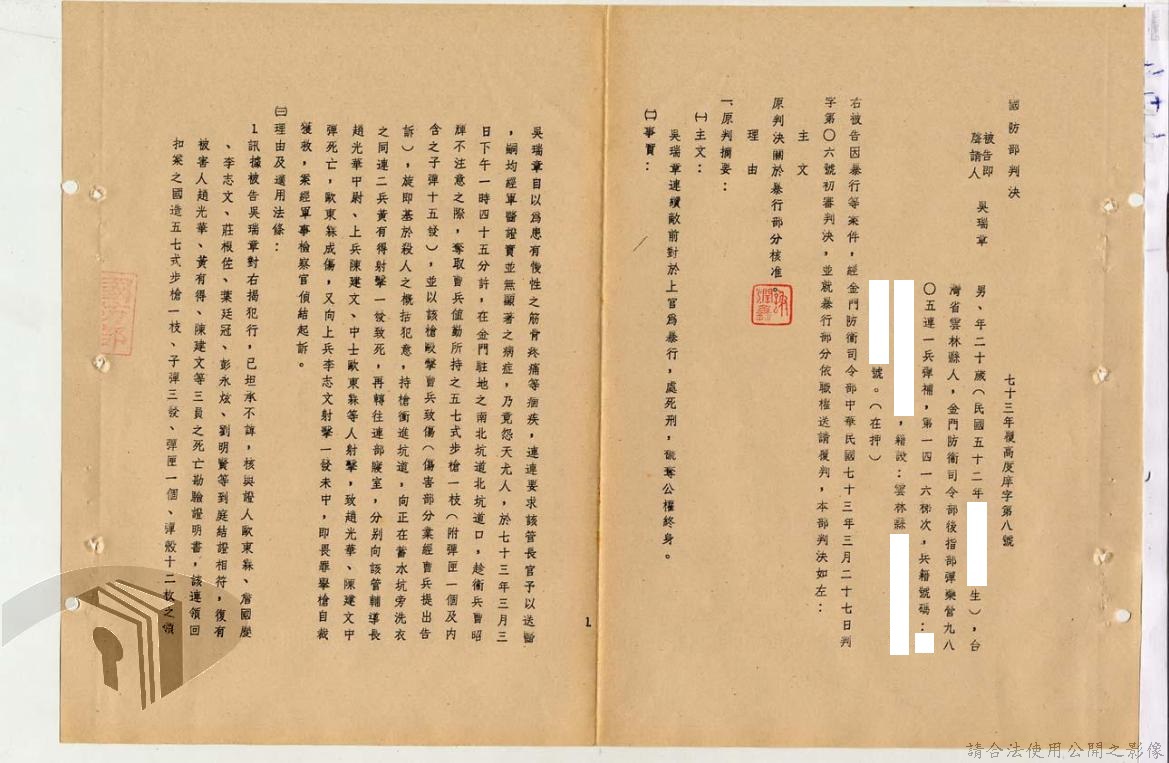 國防部判決
七十三年覆高度庠字第八號
被告即
聲請人
吳瑞章
男、年二十歲(民國五十二年
生),台
灣省雲林縣人,金門防衛司令部後指部彈藥營九八
〇五連一兵彈補,第一四一六梯次,兵籍號碼:
,籍設:雲林縣
號。(在押)
右被告因暴行等案件,經金門防衛司令部中華民國七十三年三月二十七日判
字第〇六號初審判決,並就暴行部分依職權送請覆判,本部判決如左:
主文
原判決關於暴行部分核准。
理由
一、原判摘要:
㈠主文:
吳瑞章連續敵前對於上官為暴行,處死刑,褫奪公權終身。
㈡事實:
1
吳瑞章自以為患有後性之筋骨疼痛等痼疾,連連要求該管長官予以送醫
,嗣均經軍醫證實並無顯著之病症,乃竟怨天尤人,於七十三年三月三
日下午一時四十五分許,在金門駐地之南北坑道北坑道口,趁衛兵曹昭
牌不注意之際,奪取曹兵值勤所持之五七式步槍一枝(附彈匣一個及內
含之子彈十五發),並以該槍毆擊曹兵致傷(傷害部分業經曹兵提出告
訴),旋即基於殺人之概括犯意,持槍衝進坑道,向正在蓄水坑旁洗衣
之同連二兵黃有得射擊一發致死,再轉往連部寢室,分別向該管輔導長
趙光華中尉、上兵陳建文、中士歐東森等人射擊,致趙光華、陳建文中
彈死亡,歐東森成傷,又向上兵李志文射擊一發未中,即畏罪舉槍自裁
獲救,案經軍事檢察官偵結起訴。
㈢理由及適用法條:
1訊據被告吳瑞章對右揭犯行,已坦承不諱,核與證人歐東森、詹國慶
、李志文、莊根佐、葉廷冠、彭永炫、劉明賢等到庭結證相符,復有
被害人趙光華、黃有得、陳建文等三員之死亡勘驗證明書,該連領回
扣案之國造五七式步槍一枝、子彈三發、彈匣一個、彈殼十二枚之領
國防部
請合法使用公開之影像